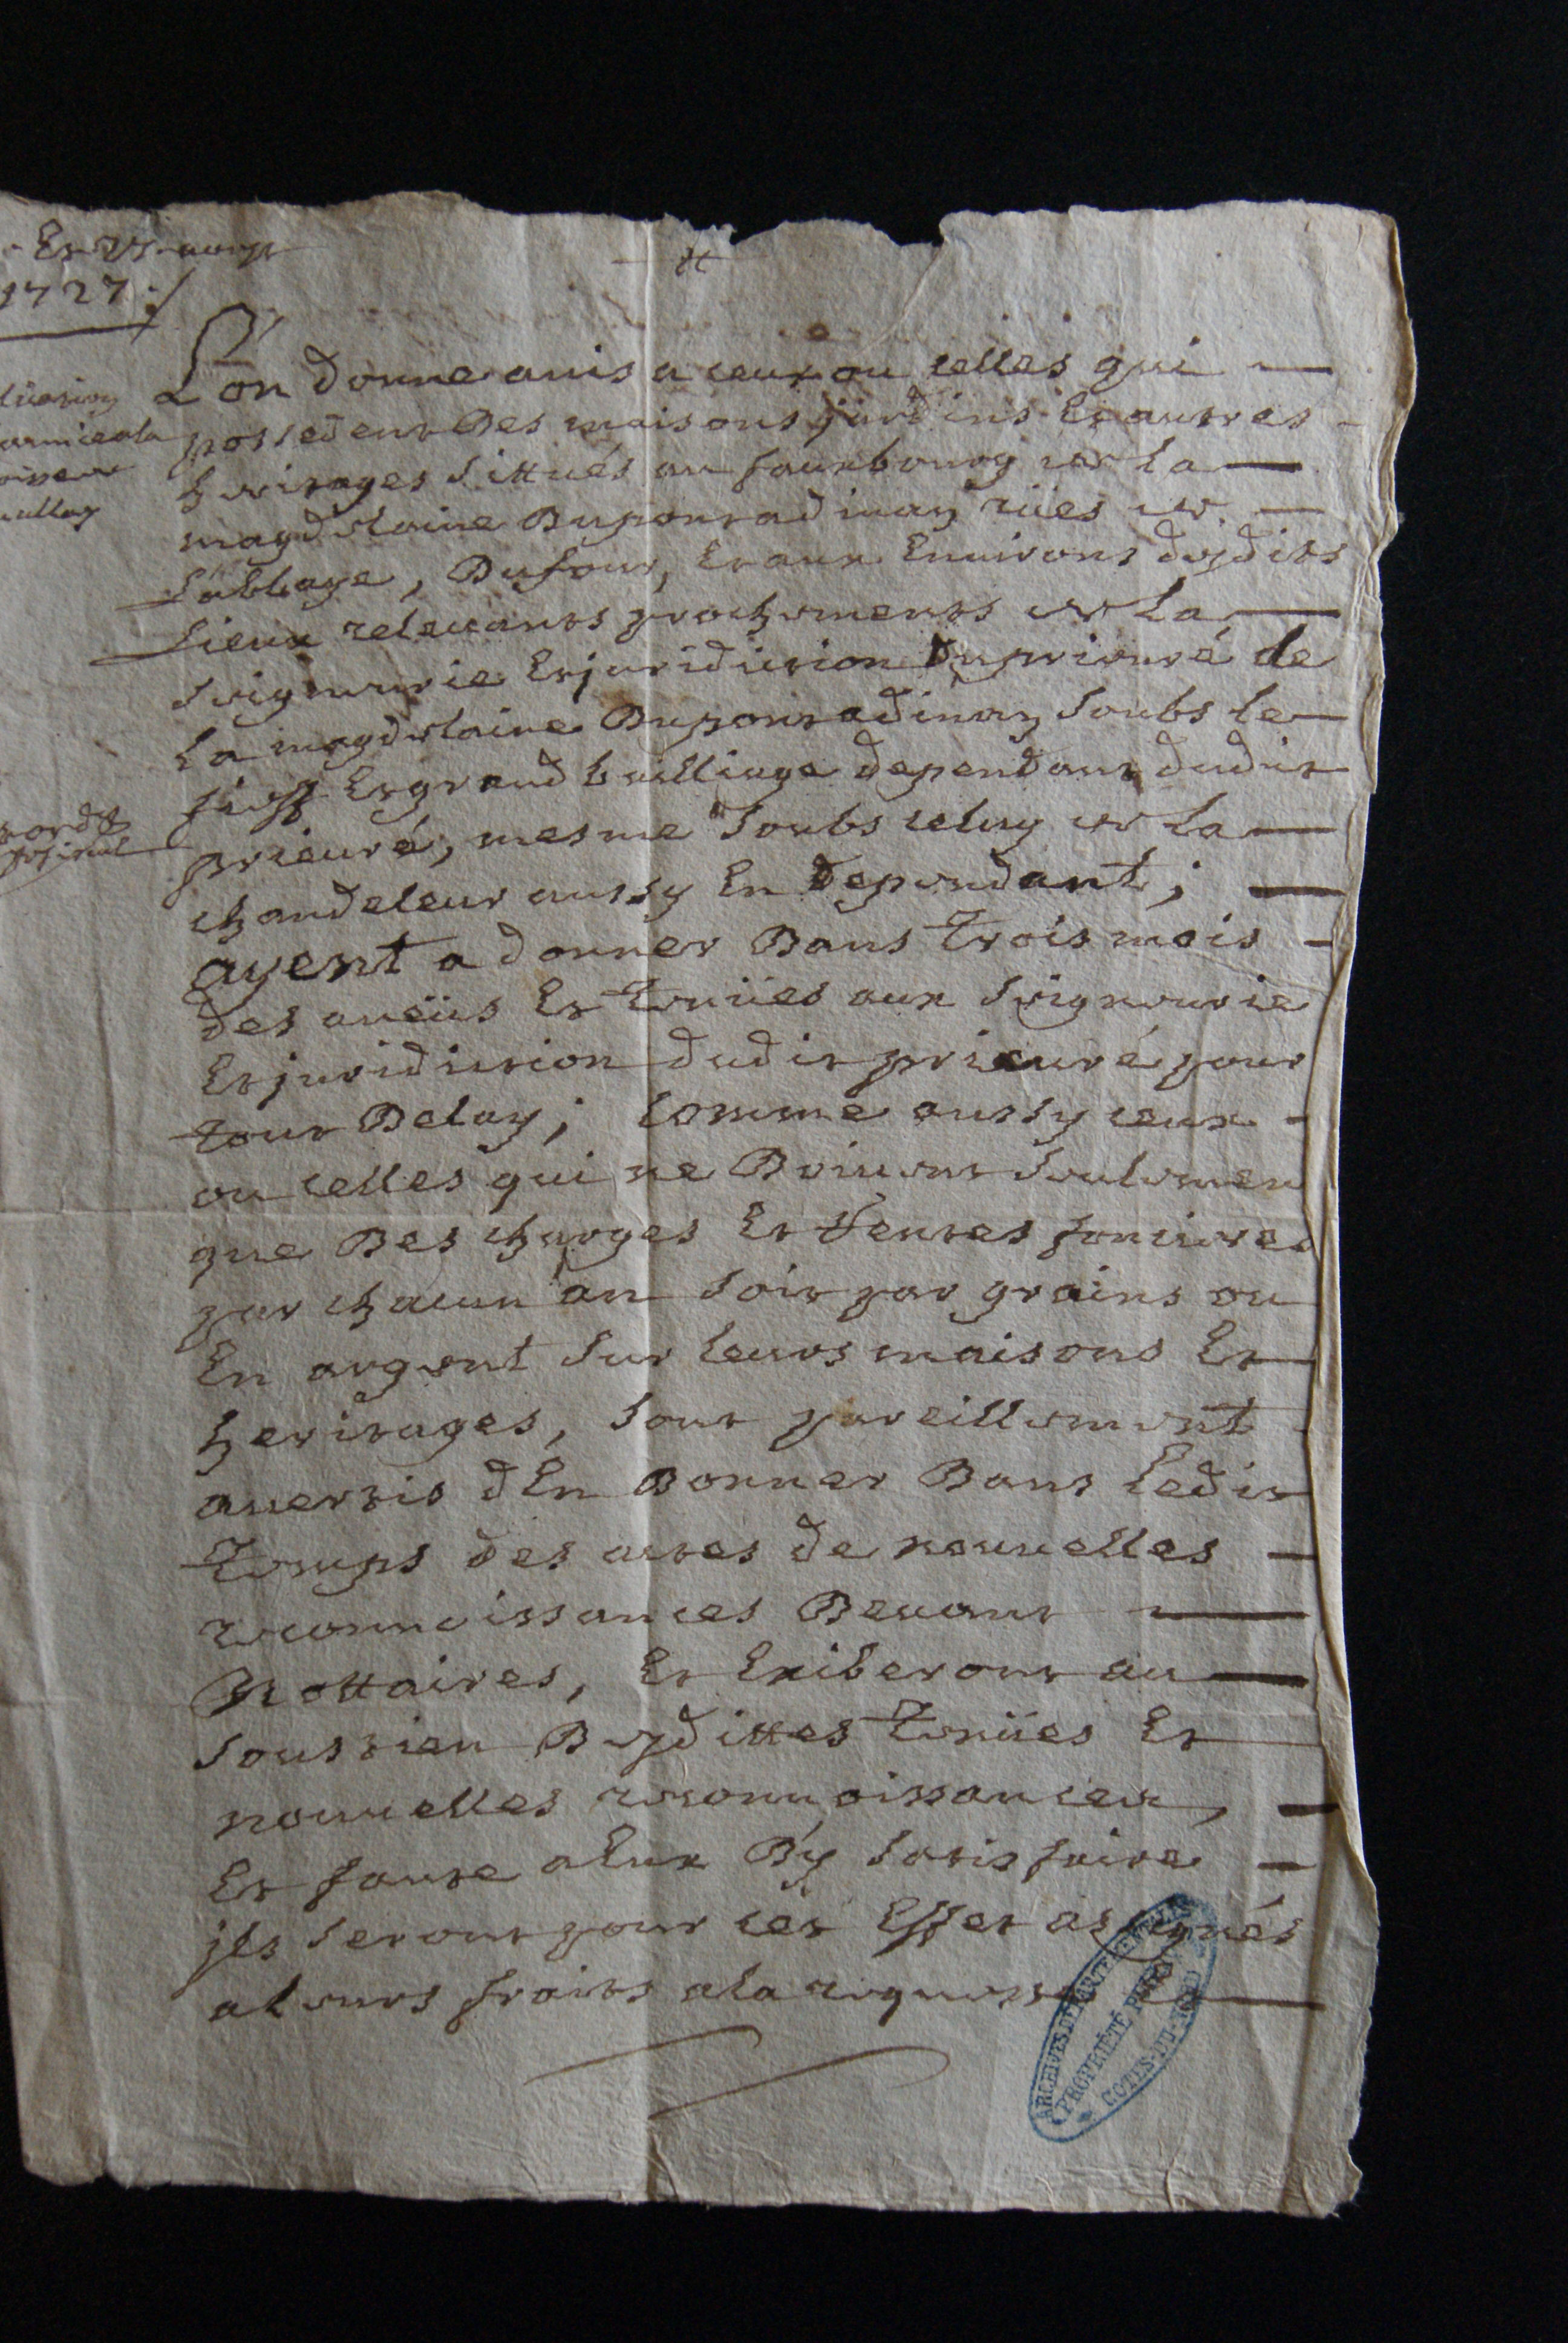 1727 ./
L'on donne auis a ceux ou celles qui
possedent des maisons jardins Et autres
heritages sittués au fauxbourg de la
magdelaine du pont a dinan rües de
L'abbaye, du four, Et aux Enuirons desdits
Lieux releuants prochement de La
seigneurie Et juridiction du prieuré de
La magdelaine du pont a dinan soubs le
fieff Et grand bailliage dependant dudit
prieuré, mesme soubs celuy de La
chandeleur aussy En dependant;
ayent a donner dans trois mois
des aueüs Et tenües aux seigneurie
Et juridiction dudit prieuré pour
tout delay; comme aussy ceux
ou celles qui ne doiuent seulemen
que des charges Et rentes foncieres
par chacun an soit par grains ou
En argent sur leurs maisons Et
heritages, sont pareillement
auertis d'En donner dans Ledit
temps des actes de nouuelles
reconnoissances deuant
Nottaires, Et Exiberont au
soustien desdittes tenües Et
nouuelles reconnoissances,
Et faute a Eux d'y satisfaire
ils seront pour cet Effet assignés
a leurs fraits a la requeste
ARCHIVES DÉPARTEMENTALES
PROPRIÉTÉ PUBLIQUE
COTES-DU-NORD